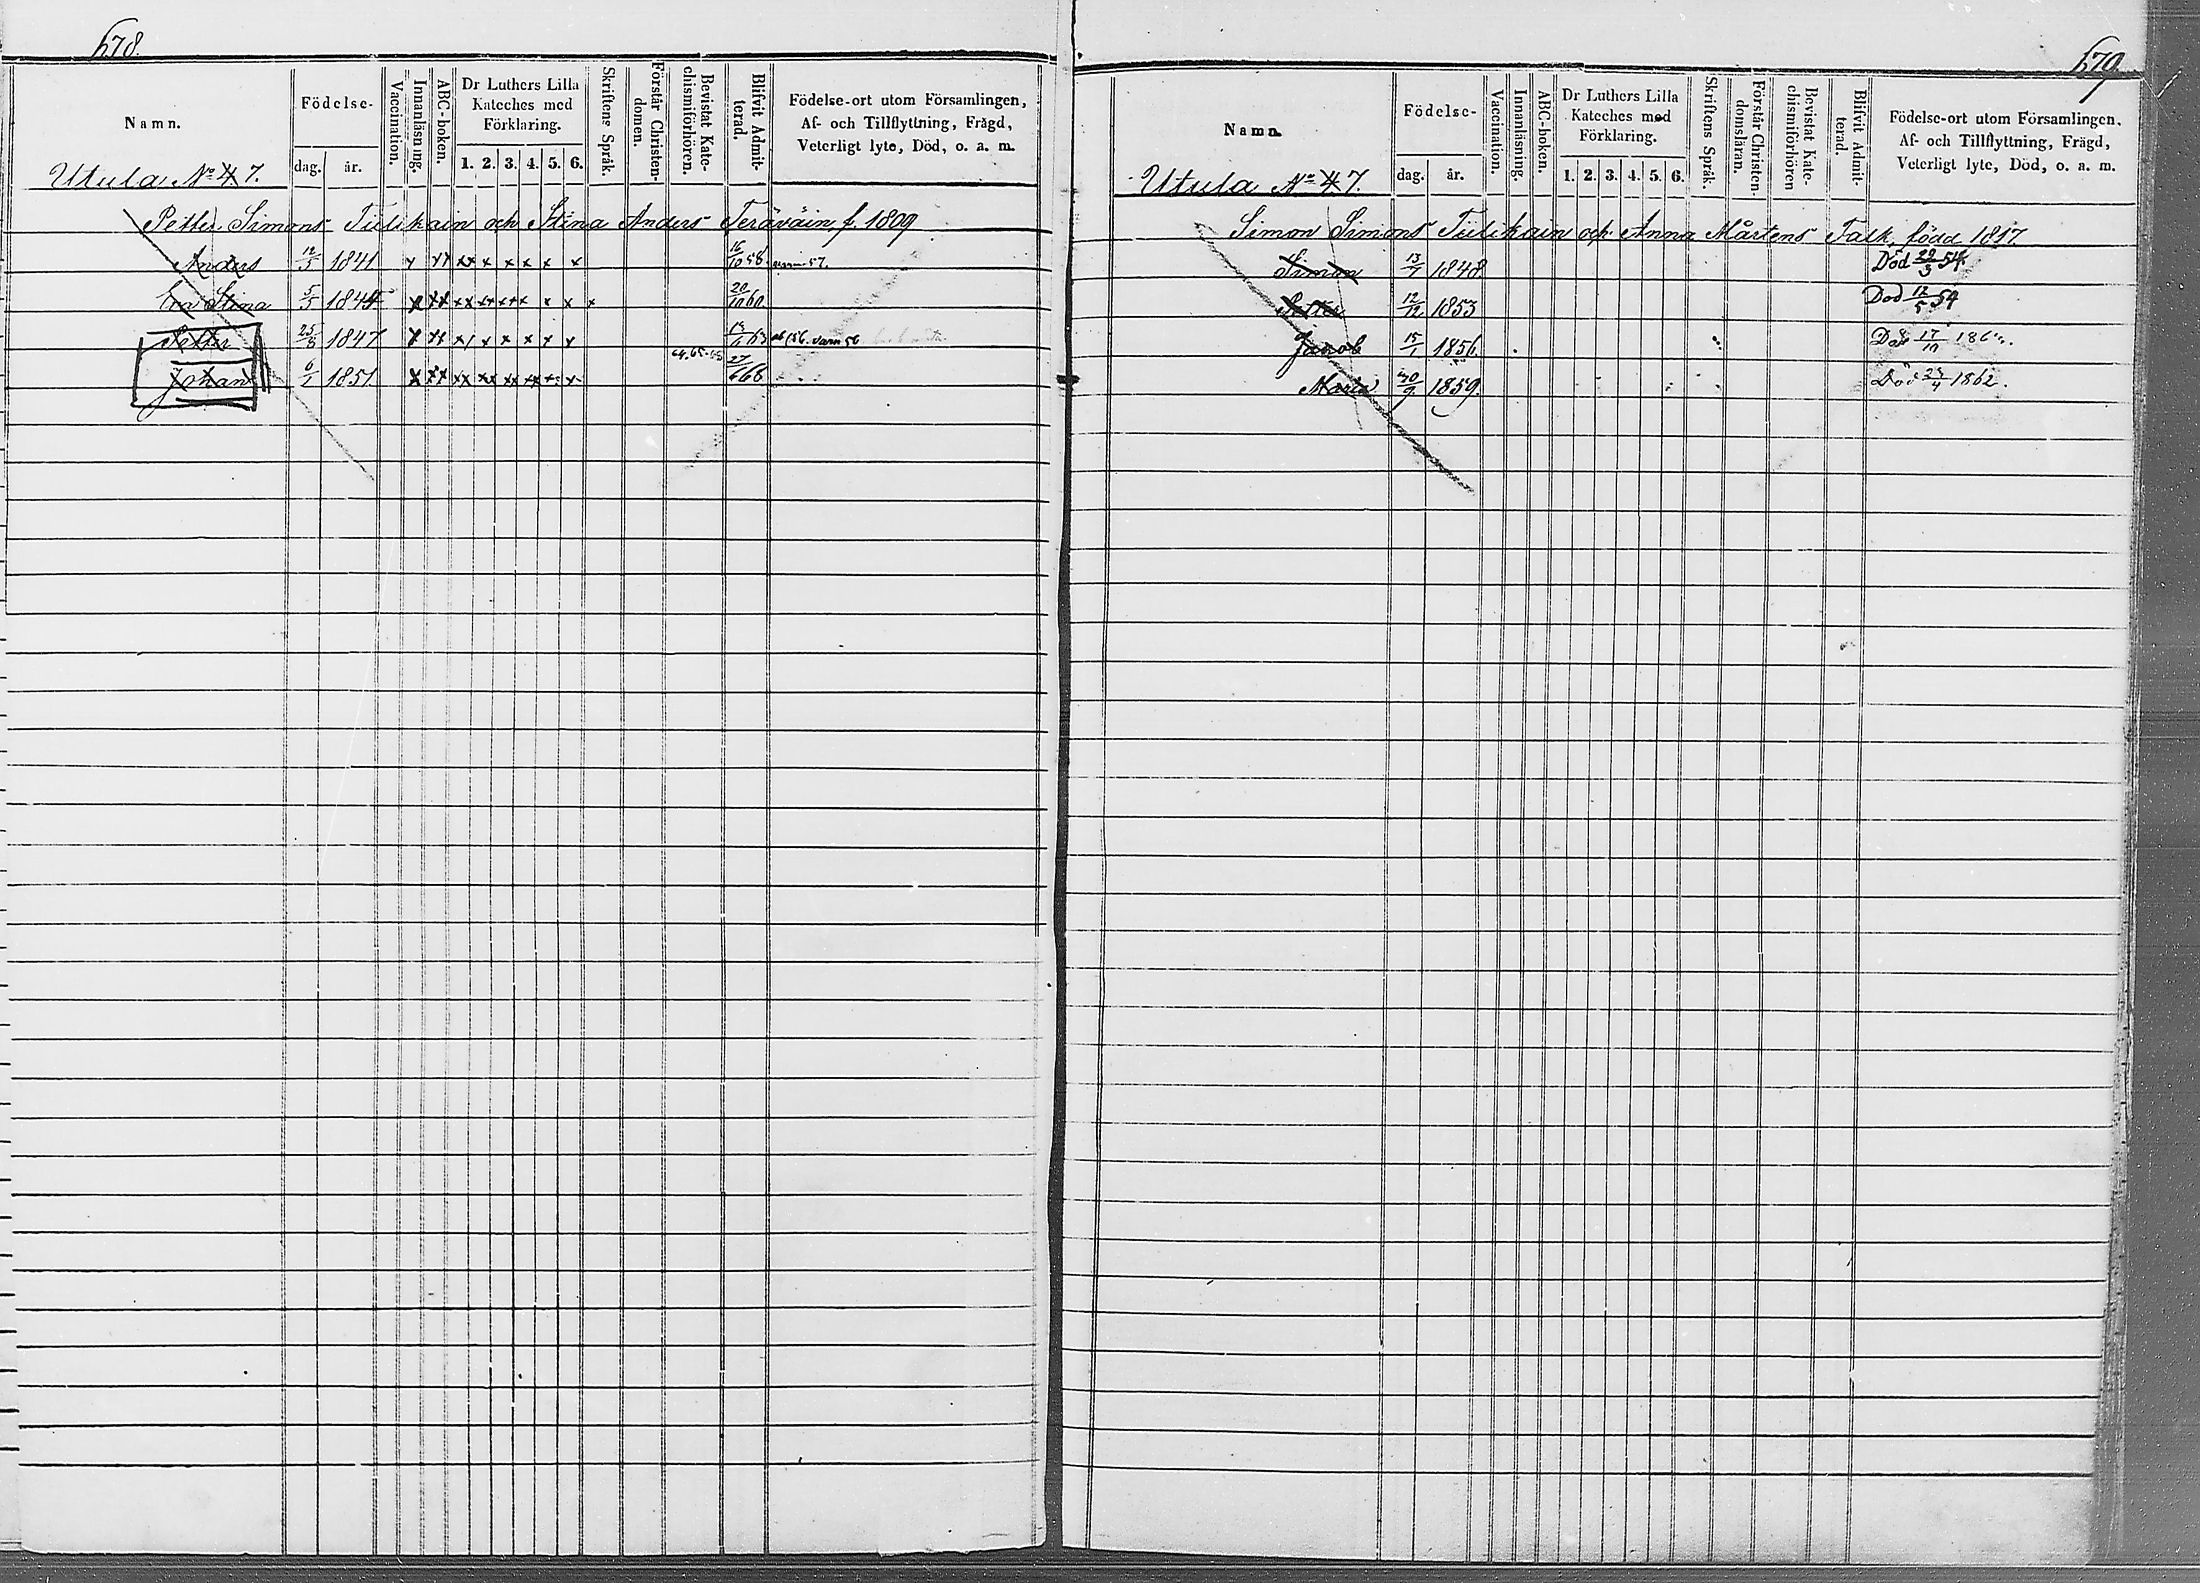 678.
Namn.
Födelse-
dag. år.
Vaccination.
Innanläsning.
ABC-boken.
Dr Luthers Lilla
Kateches med
Förklaring.
1. 2. 3. 4. 5. 6.
Skriftens Språk.
Förstår Christen-
domen.
Bevistat Kate-
chismiförhören.
Blifvit Admit-
terad.
Födelse-ort utom Församlingen,
Af- och Tillflyttning, Frägd,
Veterligt lyte, Död, o. a. m.
Utula No 4 7.
Petter Simons Tiilikain och Stina Anders Teräväin, f. 1809
Anders 12/3 1841 x xx xx x x x x x 16/10 58.
Eva Stina 5/5 1844 x xx xx xx xx x x x 20/10 60.
Petter 25/8 1847 x xx x x x x x x 63 56
64. 65. 27/6 68
Johan 6/1 1851 x xx xx xx xx xx x x
679.
Namn.
Födelse-
dag. år.
Vaccination.
Innanläsning.
ABC-boken.
Dr Luthers Lilla
Kateches med
Förklaring.
1. 2. 3. 4. 5. 6.
Skriftens Språk.
Förstår Christen-
domsläran.
Bevistat Kate-
chismiförhören
Blifvit Admit-
terad.
Födelse-ort utom Församlingen.
Af- och Tillflyttning, Frägd,
Veterligt lyte, Död, o. a. m.
Utula No 4 7.
Simon Simons Tiilikain och Anna Mårtens Falk, född 1817.
Simon 13/7 1848 Död 29/3 54.
Petter 12/12 1853 Död 12/5 54
Jacob 15/1 1856. Död 17/10
Maria 30/9 1859. Död 1862.